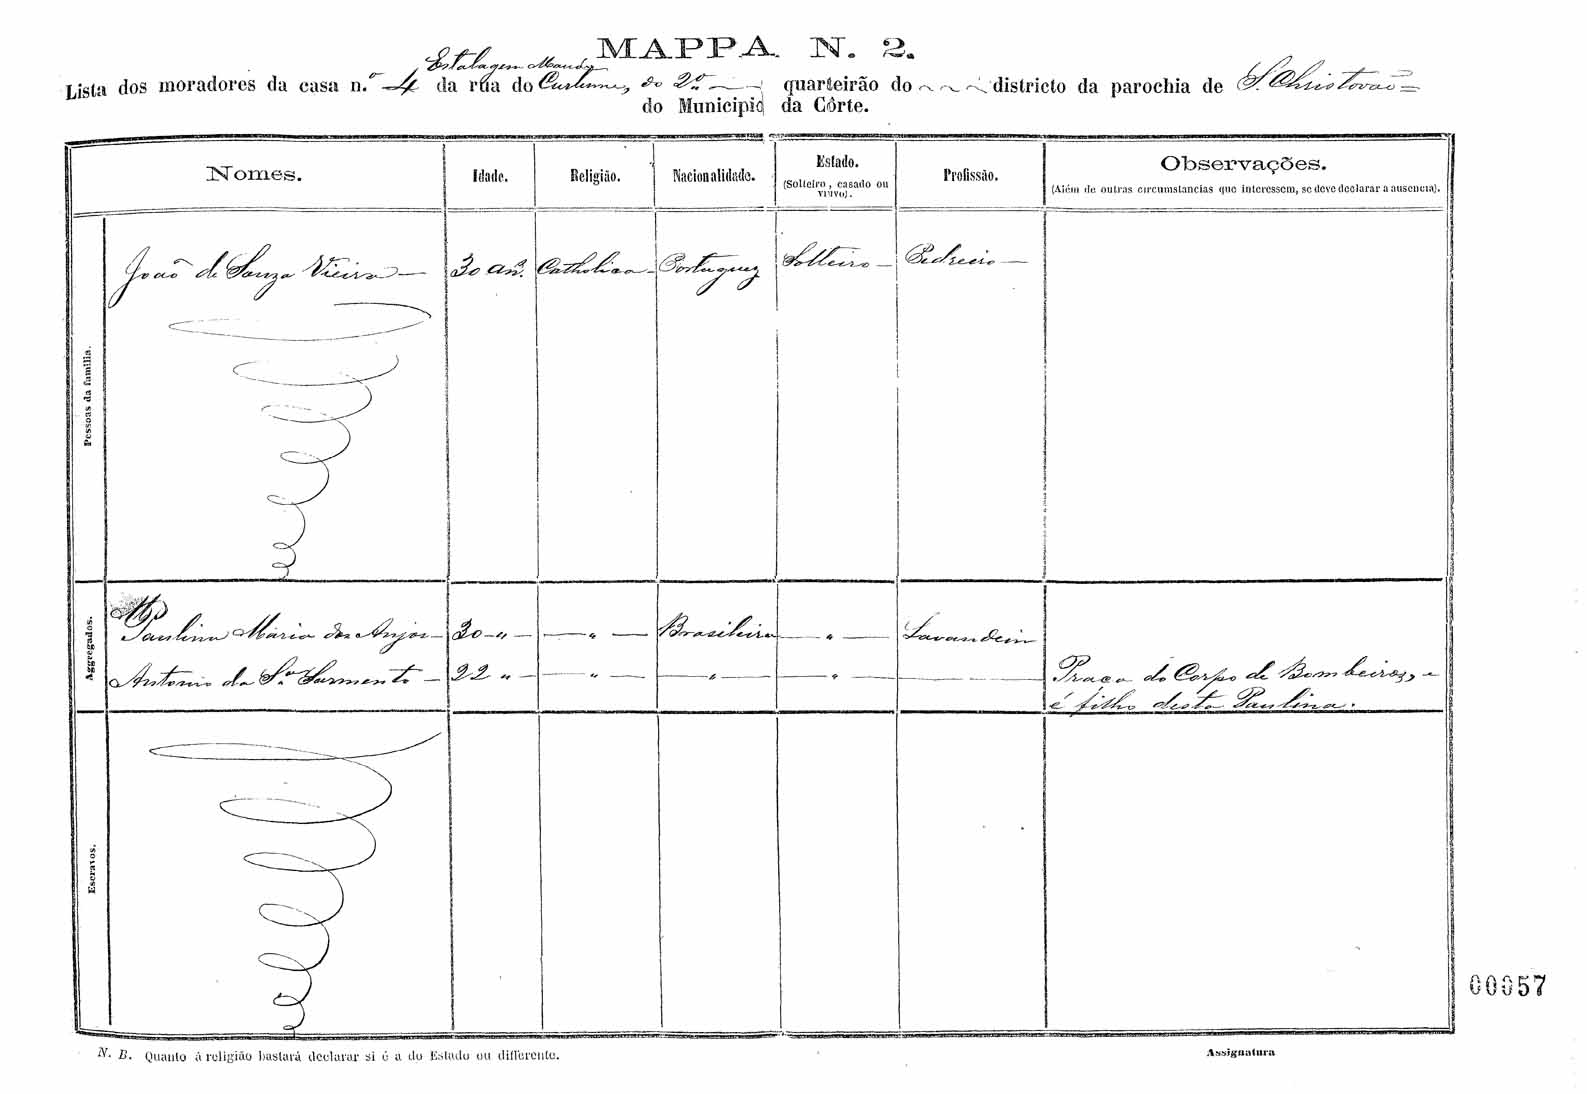 MAPPA N. 2.
Estalagem Mauá
Lista dos moradores da casa n.º 4 da rua do Curtume, do 2º quarteirão do ~ ~ ~ districto da parochia de S. Christovão
do Municipio da Côrte.
Nomes. Idade. Religião. Nacionalidade. Estado. (Solteiro, casado ou viuvo). Profissão. Observações. (Além de outras circumstancias que interessem, se deve declarar a ausencia).
Pessoas da familia.
João de Souza Vieira — 30 an.s Catholica — Portuguez Solteiro — Pedreiro —
Aggregados.
Paulina Maria dos Anjos — 30 " — — " — Brasileira — " — Lavandeira
Antonio da S.ª Sarmento — 22 " — — " — — " — — " — — Praca do Corpo de Bombeiros, e
é filho desta Paulina.
Escravos.
00057
N. B. Quanto á religião bastará declarar si é a do Estado ou differente.
Assignatura